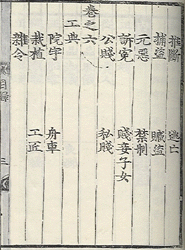 推斷 逃亡
捕盜 贓盜
元惡 禁制
訴冤 賤妻子女
公賤 私賤
卷之六
工典
院宇 舟車
栽植 工匠
雜令
目錄 三